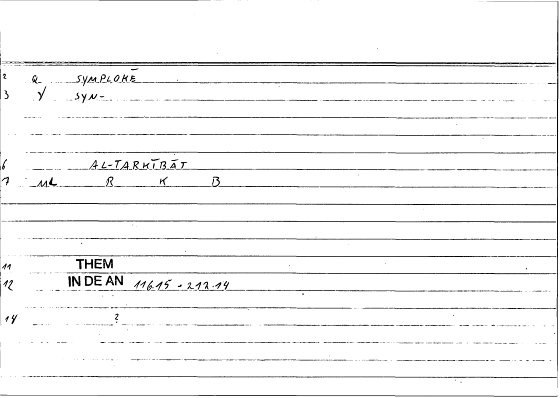 2 Q SYMPLOKĒ
3 Y SYN-
6 AL-TARKĪBĀT
7 ML R K B
11 THEM
12 IN DE AN 11615 - 212.14
14 ?